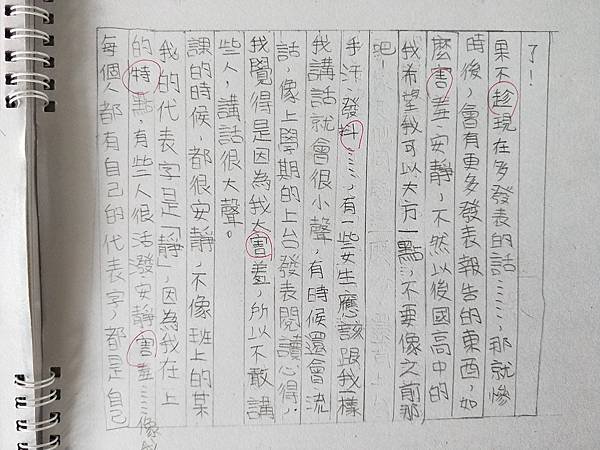 每個人都有自己的代表字,都是自己
的特點,有些人很活發安靜害羞……像我
我的代表字是「靜」,因為我在上
課的時候,都很安靜,不像班上的某
些人,講話很大聲。
我覺得是因為我太害羞,所以不敢講
話,像上學期的上台發表閱讀心得,
我講話就會很小聲,有時候還會流
手汗、發抖……,有一些女生應該跟我一樣
吧!
我希望我可以大方一點……,不要像之前那
麼害羞、安靜,不然以後國高中的
時後,會有更多發表報告的東西,如
果不趁現在多發表的話……,那就慘
了!